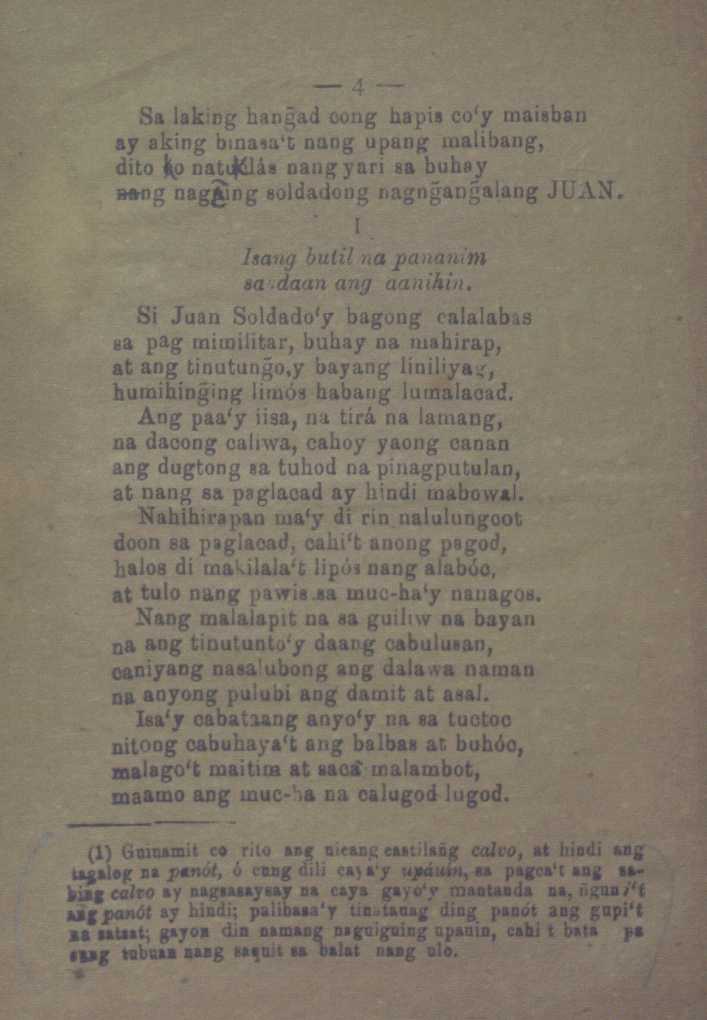 — 4 —
Sa laking hang̃ad cong hapis co‘y maisban
ay aking binasa‘t nang upang malibang,
dito ko natuklás nang yari sa buhay
nang nag̃ing soldadong nagng̃ang̃alang JUAN.
I
Isang butil na pananim
sa daan ang aanihin.
Si Juan Soldado‘y bagong calalabas
sa pag mimilitar, buhay na mahirap,
at ang tinutung̃o,y bayang liniliyag,
humihing̃ing limós habang lumalacad.
Ang paa‘y iisa, na tirá na lamang,
na dacong caliwa, cahoy yaong canan
ang dugtong sa tuhod na pinagputulan,
at nang sa paglacad ay hindi mabowal.
Nahihirapan ma‘y di rin nalulungcot
doon sa paglacad, cahi‘t anong pagod,
halos di makilala‘t lipós nang alabóc,
at tulo nang pawis sa muc-ha‘y nanagos.
Nang malalapit na sa guiliw na bayan
na ang tinutunto‘y daang cabulusan,
caniyang nasalubong ang dalawa naman
na anyong pulubi ang damit at asal.
Isa‘y cabataang anyo‘y na sa tuctoc
nitong cabuhaya‘t ang balbas at buhóc,
malago‘t maitim at sacâ malambot,
maamo ang muc-ha na calugod lugod.
(1) Guinamit co rito ang uicang castilang̃ calvo, at hindi ang
tagalog na panót, ó cung dili caya‘y upáuin, sa pagca‘t ang sa-
bing calvo ay nagsasaysay na caya gayo‘y mantanda na, ng̃uni‘t
ang panót ay hindi; palibasa‘y tinatauag ding panót ang gupi‘t
na satsat; gayon din namang naguiguing upauin, cahi t bata pa
cung tubuan nang saquit sa balat nang ulo.